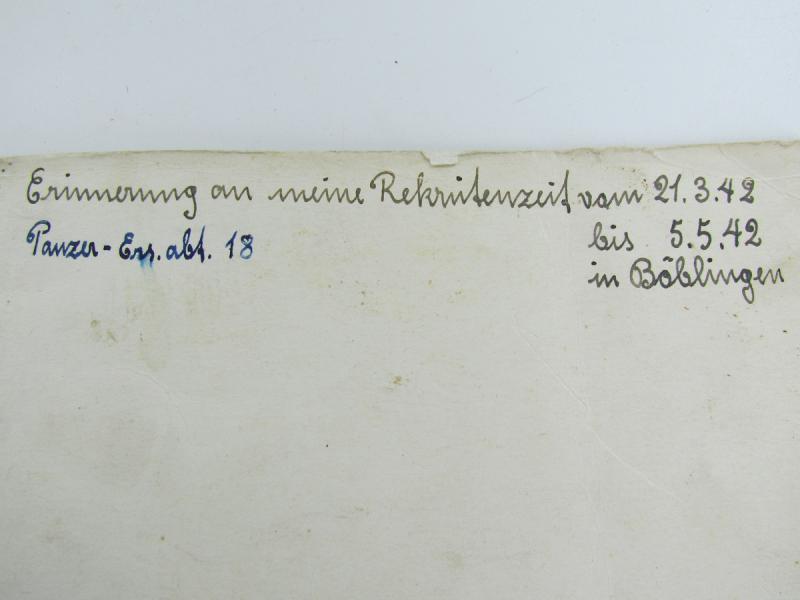 Erinnerung an meine Rekrutenzeit vom 21.3.42
Panzer-Ers.abt. 18
bis 5.5.42
in Böblingen